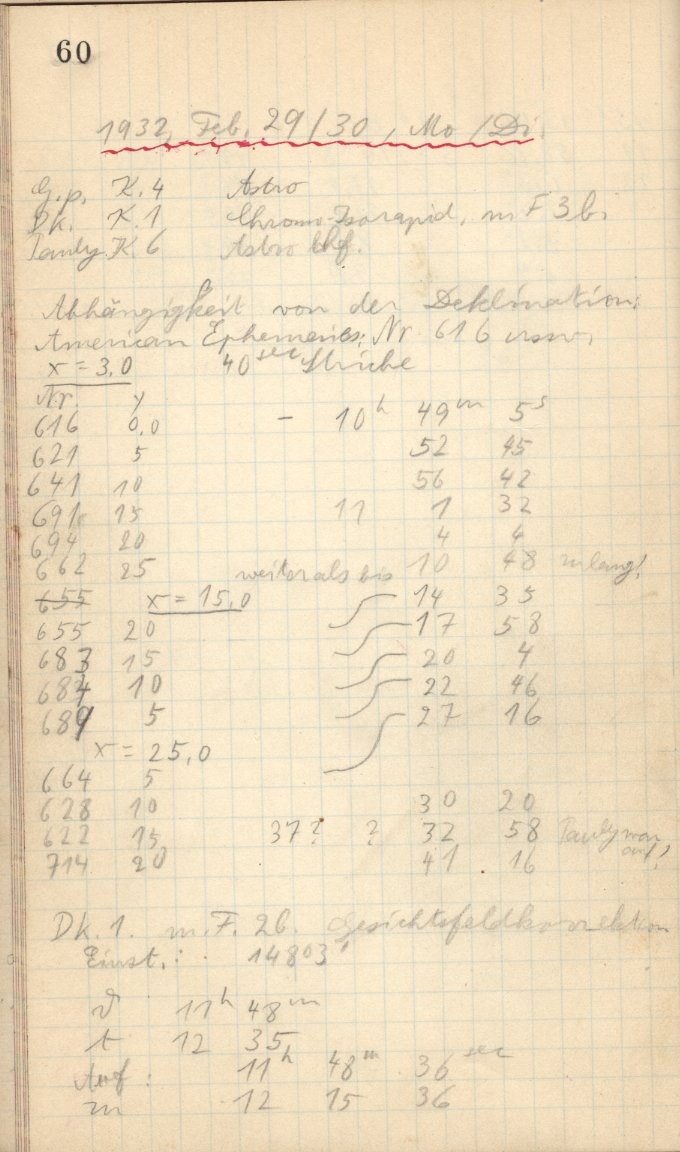 60
1932, Feb. 29/30, Mo/Di.
G.p. K. 4 Astro
Dk. K. 1 Chromo-Isorapid, m F 3 b.
Pauly K 6 Astro hhf.
Abhängigkeit von der Deklination:
American Ephemeris: Nr 616 usw.
x = 3,0 40 sec Striche
Nr. y
616 0,0 – 10h 49m 5s
621 5 52 45
641 10 56 42
691 15 11 1 32
694 20 4 4
662 25 weiter als bis 10 48 zu lang!
655 x = 15,0 14 35
655 20 17 58
683 15 20 4
684 10 22 46
689 5 27 16
x = 25,0
664 5
628 10 30 20
622 15 37? ? 32 58 Pauly war
auf!
714 20 41 16
Dk. 1. m. F. 2b. Gesichtsfeldkorrektion
Einst.: 148°3'
ϑ 11h 48m
t 12 35
Auf: 11h 48m 36sec
zu 12 15 36